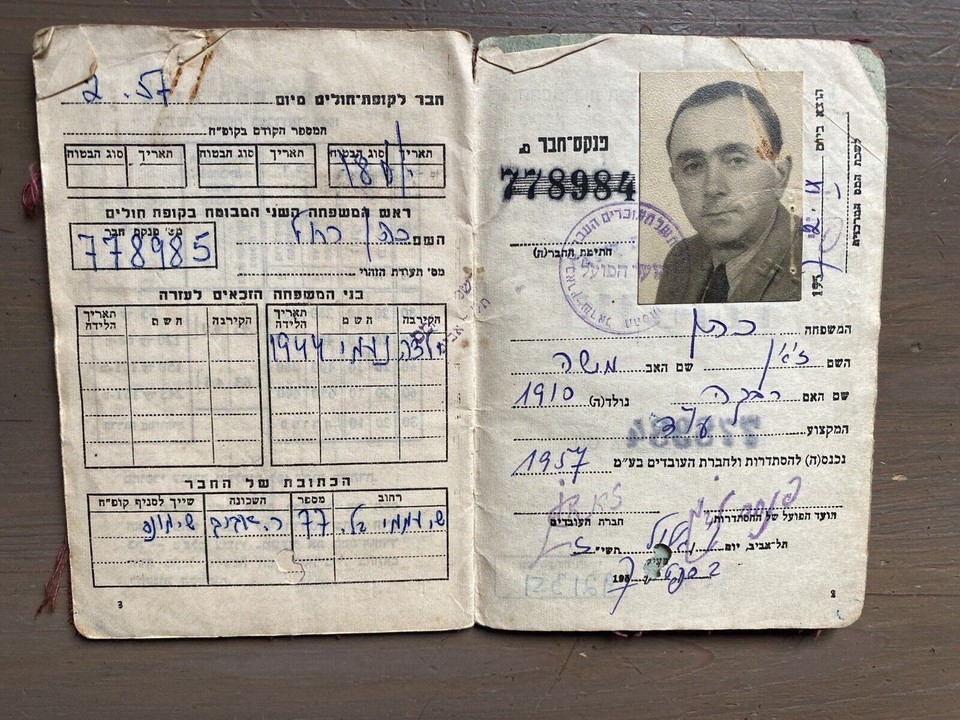 פנקס-חבר מס
778984
חתימת החבר(ה)
הוצא ביום
לשכת המס המרכזית
195
המשפחה כהן
השם ז'אן שם האב משה
שם האם רבקה נולד(ה) 1910
המקצוע
778984
נכנס(ה) להסתדרות ולחברת העובדים בע"מ 1957
הועד הפועל של ההסתדרות חברת עובדים
תל-אביב, יום תשי"ז
195 7
2
חבר לקופת-חולים מיום 2.57
המספר הקודם בקופ"ח
תאריך סוג הבטוח תאריך סוג הבטוח תאריך סוג הבטוח
ראש המשפחה השני המבוטח בקופת חולים
מס' פנקס חבר
778985
השם כהן רחל
מס' תעודת הזהוי
בני המשפחה הזכאים לעזרה
הקירבה השם תאריך הלידה הקירבה השם תאריך הלידה
ילדה נעמי 1944
הכתובת של החבר
רחוב מספר השכונה שייך לסניף קופ"ח
77 ר. אביב
3